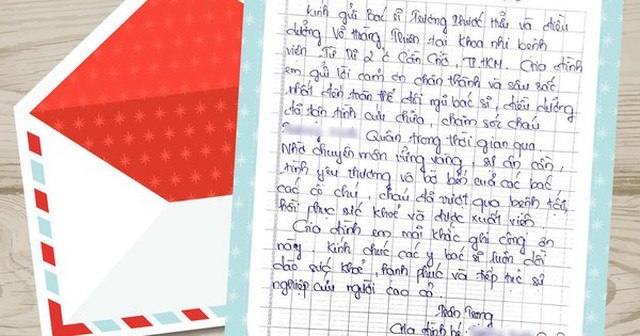 Kính gửi bác sĩ Trương Phước Hữu và điều
dưỡng Võ Hoàng Thiên tại khoa nhi bệnh
viện Từ Dũ 2 ở Cần Giờ, TP.HCM. Gia đình
em gửi lời cảm ơn chân thành và sâu sắc
nhất đến toàn thể đội ngũ bác sĩ, điều dưỡng
đã tận tình cứu chữa, chăm sóc cháu
Quân trong thời gian qua.
Nhờ chuyên môn vững vàng, sự ân cần,
tình yêu thương và to bến của các bác
các cô chú, cháu đã vượt qua bệnh tật,
hồi phục sức khoẻ và được xuất viện.
Gia đình em mãi khắc ghi công ơn
này. Kính chúc các y bác sĩ luôn dồi
dào sức khoẻ, hạnh phúc và tiếp tục sự
nghiệp cứu người cao cả.
Trân Trọng
Gia đình bé.